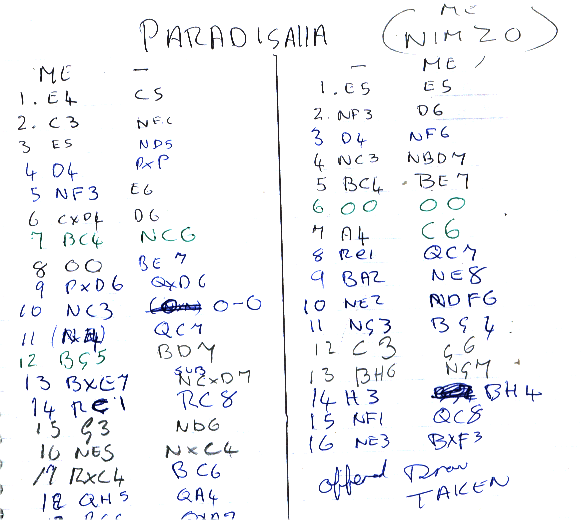 PARADISAIIA (NIMZO)
ME
ME —
1. E4 C5
2. C3 NFC
3 E5 ND5
4 D4 PXP
5 NF3 E6
6 CXD4 D6
7 BC4 NC6
8 OO BE7
9 PXD6 QXD6
10 NC3 O-O
11 QC7
12 BG5 BD7
13 BXE7 NCXD7
14 RE1 RC8
15 G3 ND6
16 NE5 NXC4
17 RXC4 BC6
18 QH5 QA4
— ME
1. E5 E5
2. NF3 D6
3 D4 NF6
4 NC3 NBD7
5 BC4 BE7
6 OO OO
7 A4 C6
8 RE1 QC7
9 BA2 NE8
10 NE2 NDF6
11 NG3 BG4
12 C3 G6
13 BH6 NG7
14 H3 BH4
15 NF1 QC8
16 NE3 BXF3
offered Draw
TAKEN